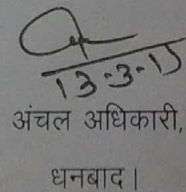 13-3-15
अंचल अधिकारी,
धनबाद।